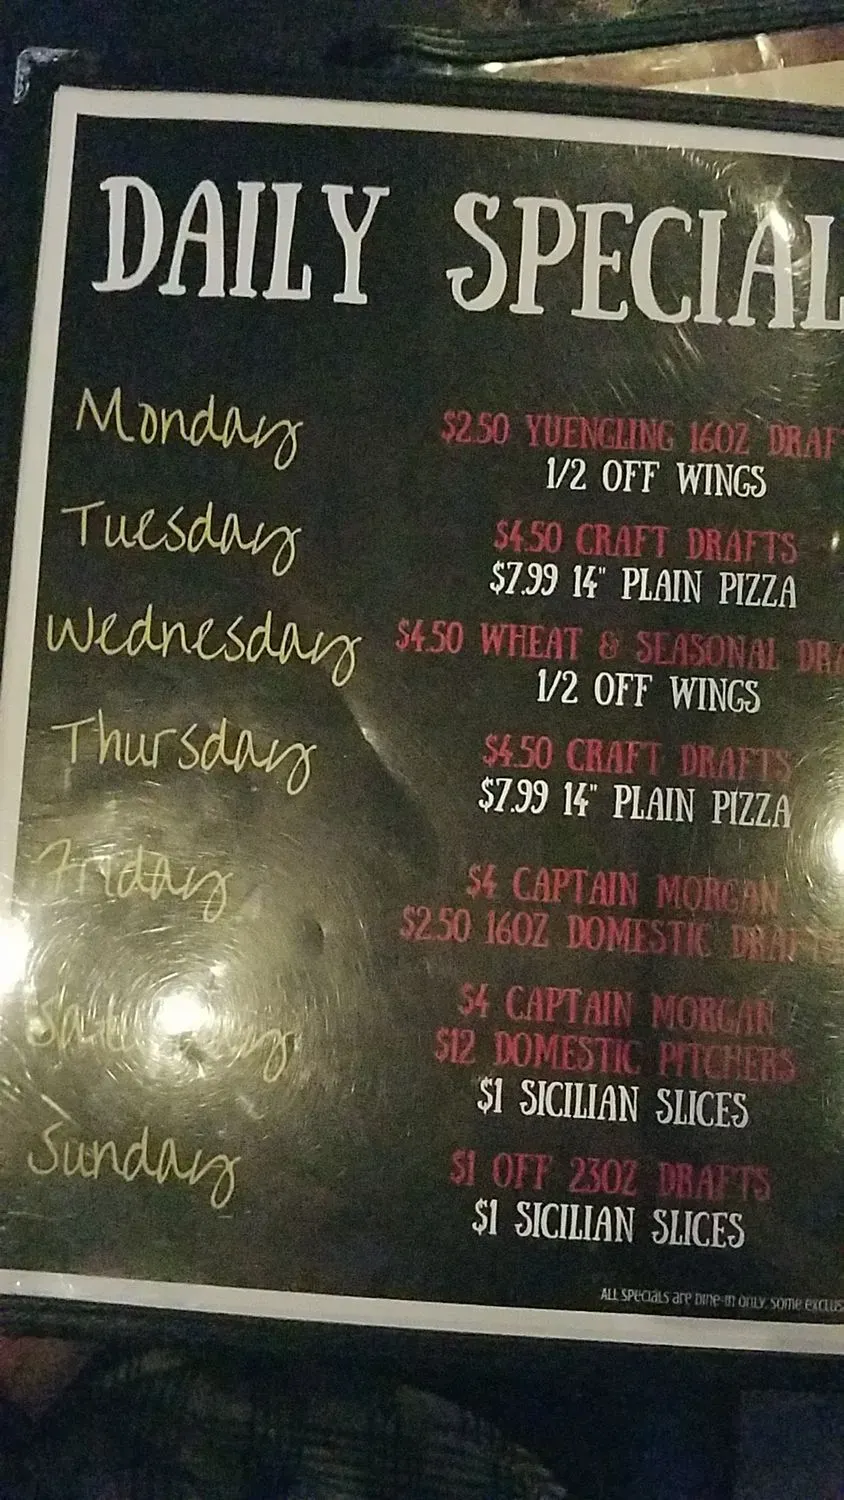 DAILY SPECIAL
Monday
$2.50 YUENGLING 16OZ DRAF
1/2 OFF WINGS
Tuesday
$4.50 CRAFT DRAFTS
$7.99 14" PLAIN PIZZA
Wednesday
$4.50 WHEAT & SEASONAL DRA
1/2 OFF WINGS
Thursday
$4.50 CRAFT DRAFTS
$7.99 14" PLAIN PIZZA
Friday
$4 CAPTAIN MORGAN
$2.50 16OZ DOMESTIC DRAFT
Saturday
$4 CAPTAIN MORGAN
$12 DOMESTIC PITCHERS
$1 SICILIAN SLICES
Sunday
$1 OFF 23OZ DRAFTS
$1 SICILIAN SLICES
ALL SPECIALS are DINE-IN ONLY. some exclus